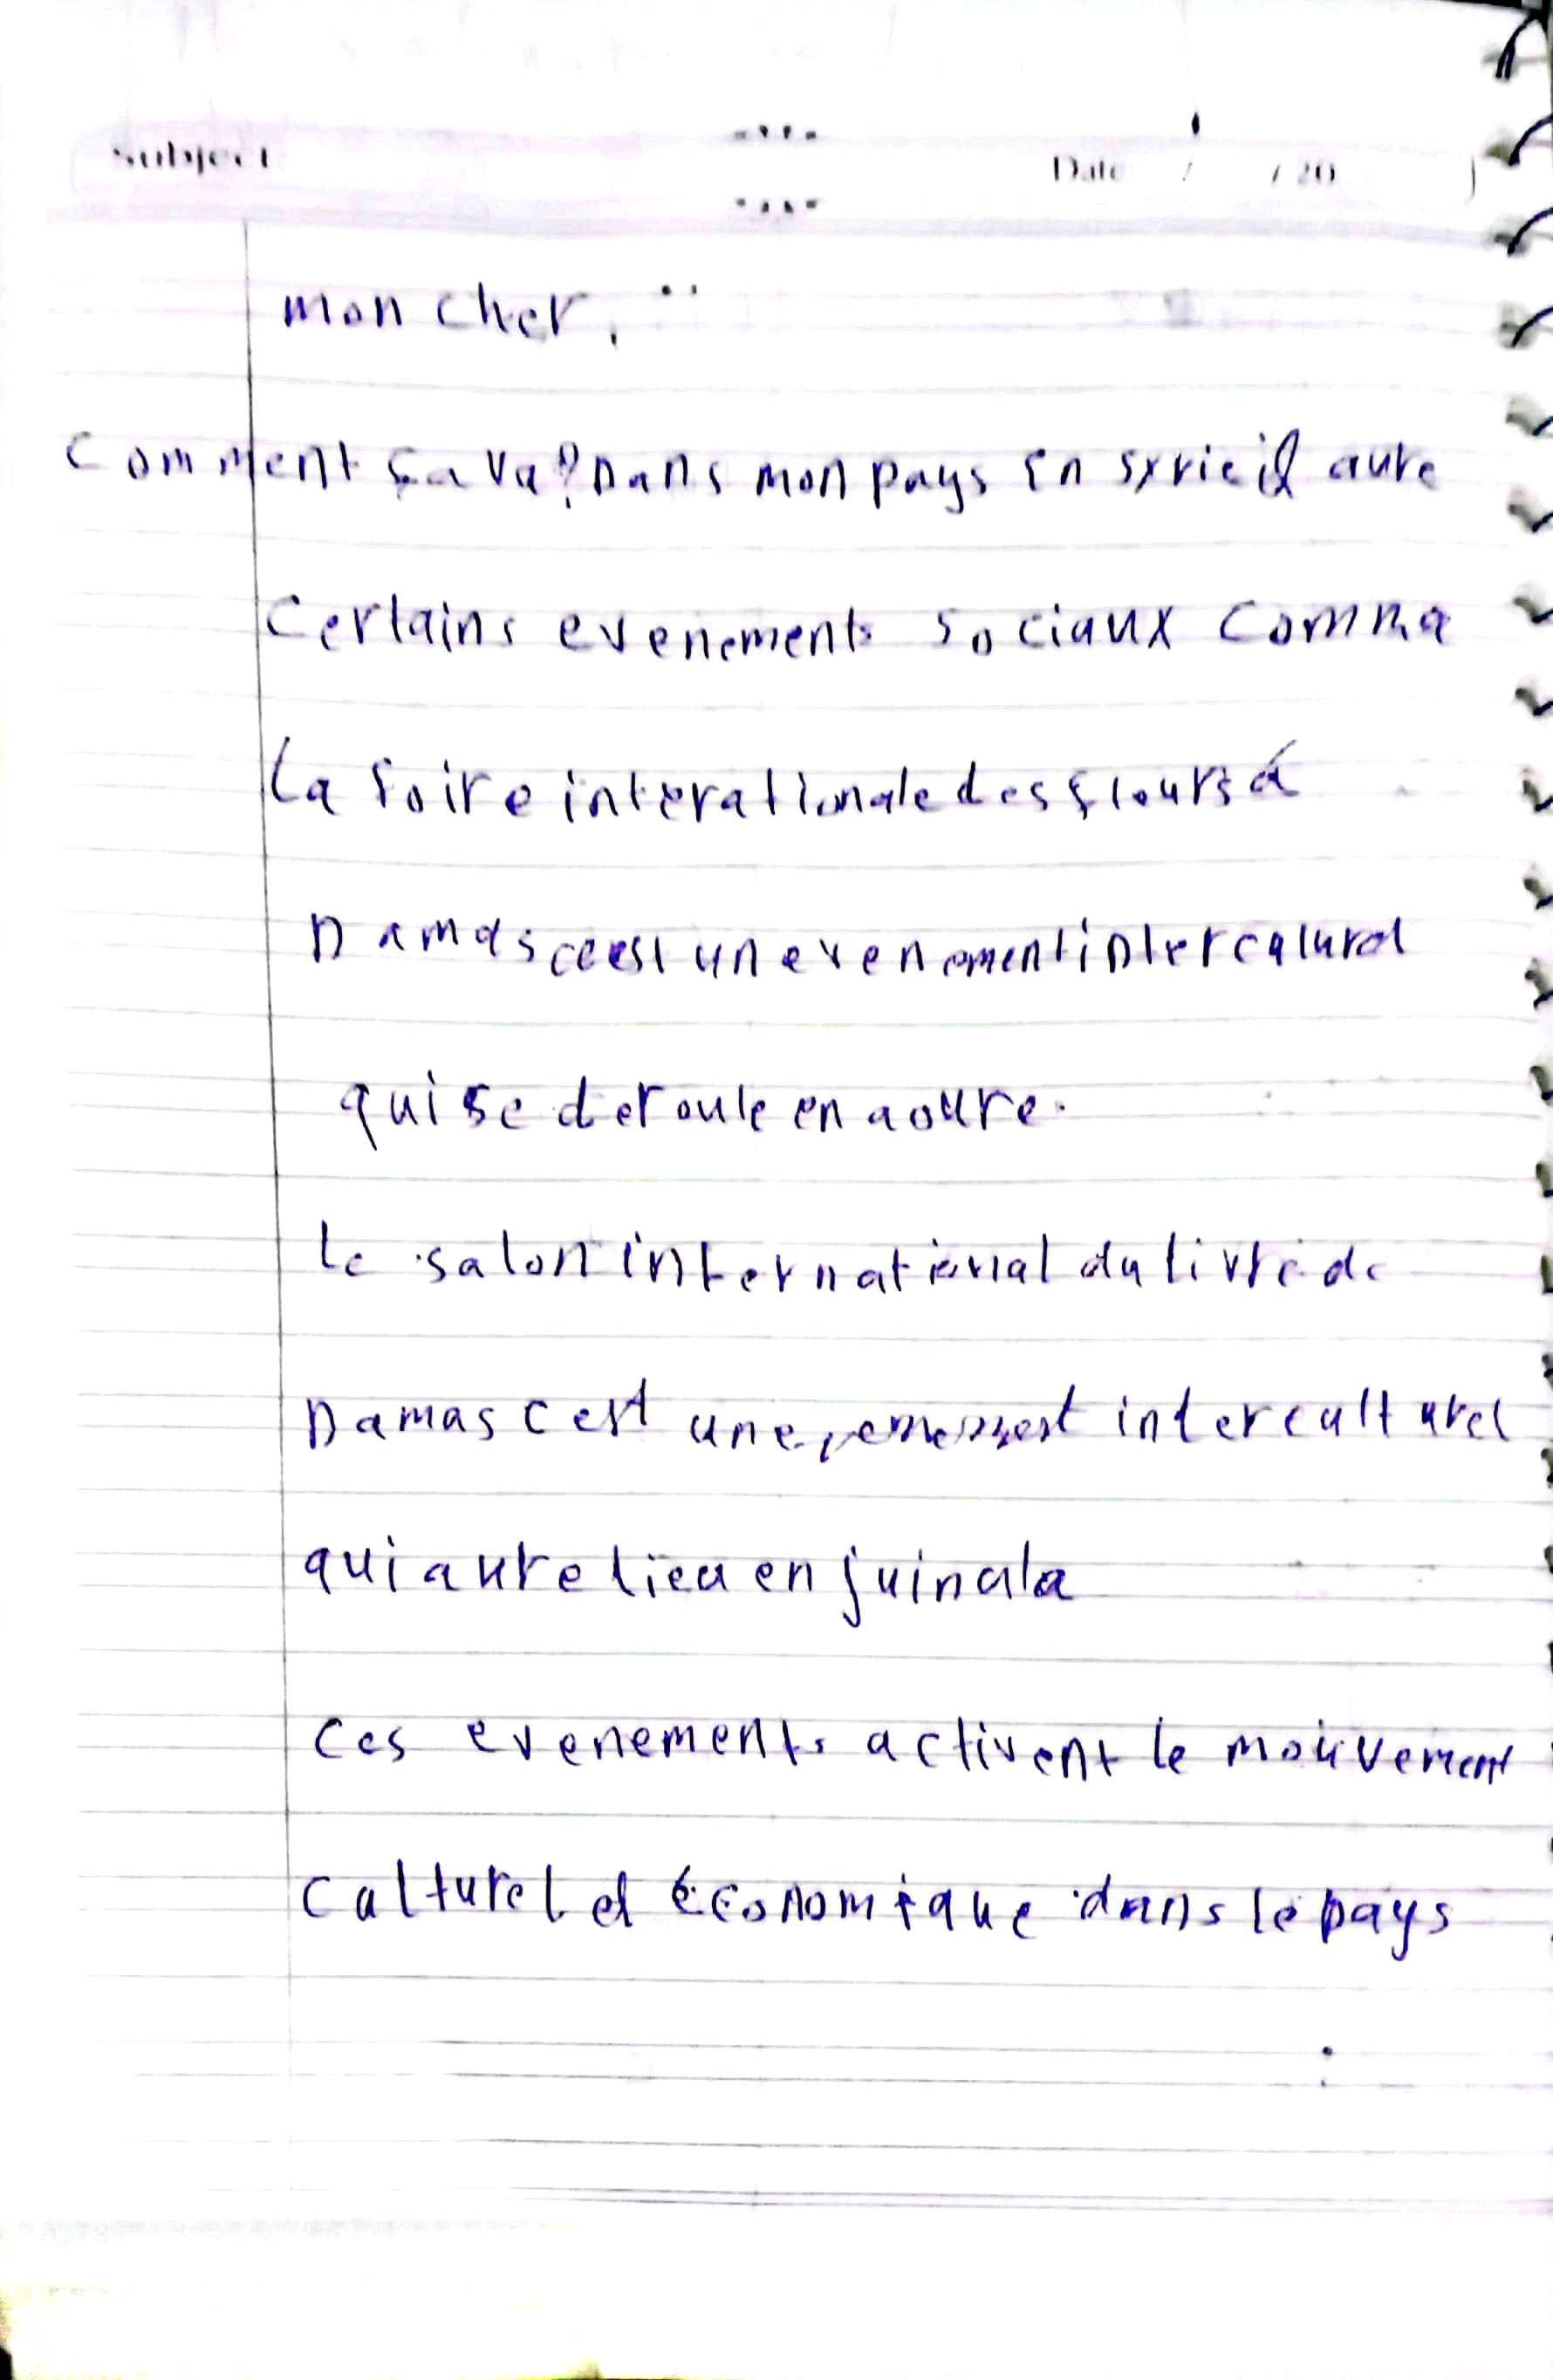 Subject
Date / / 20
mon cher, ..
comment ça va? Dans mon pays en syrie il aure
certains evenements sociaux comma
la foire interationale des flours á
Damas ceest un evenement intercalurel
qui se deroule en aoure.
le salon international du livre de
Damas cest un evenement interculturel
qui aure lieu en juin ala
ces evenements activent le mouvement
culturel et économique dans le pays
.